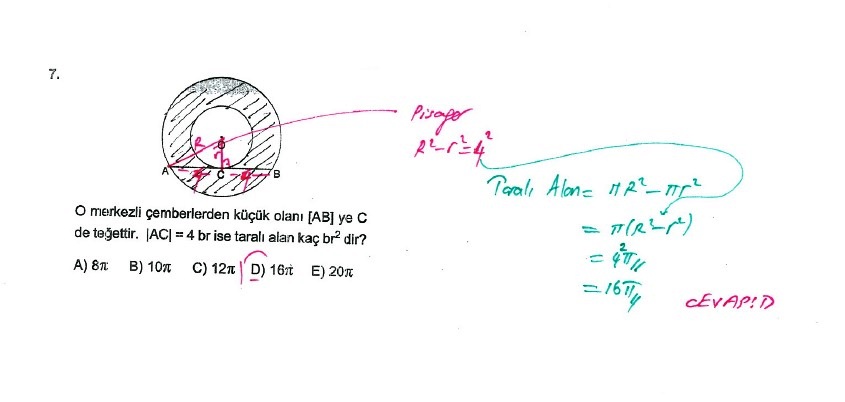 7.
R
O
r
A
4
C
4
B
Pisagor
R²-r²=4²
O merkezli çemberlerden küçük olanı [AB] ye C
de teğettir. |AC| = 4 br ise taralı alan kaç br² dir?
A) 8π B) 10π C) 12π D) 16π E) 20π
Taralı Alan = πR² - πr²
= π(R²-r²)
= 4²π
= 16π
CEVAP:D